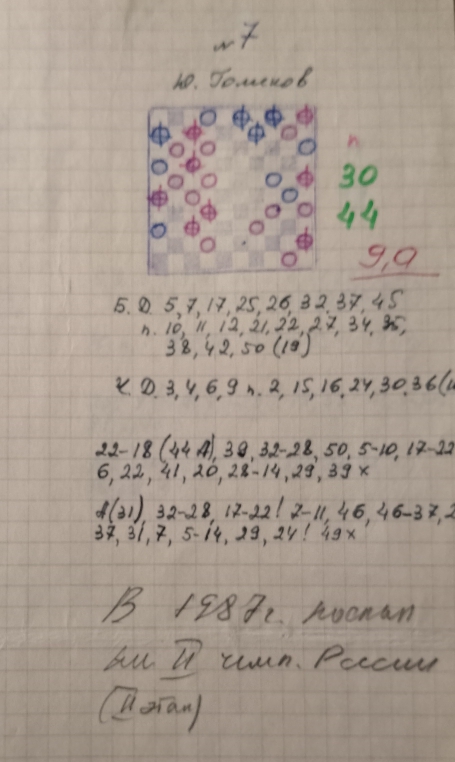 № 7
Ю. Голиков
п
30
44
9,0
Б. Д. 5, 7, 17, 25, 26, 32, 37, 45
п. 10, 11, 12, 21, 22, 27, 34, 35,
38, 42, 50 (19)
Ч. Д. 3, 4, 6, 9 п. 2, 15, 16, 24, 30, 36 (1
22-18 (44 А), 39, 32-28, 50, 5-10, 17-22
6, 22, 41, 20, 28-14, 29, 39 x
А (31) 32-28, 17-22! 7-11, 46, 46-37, 2
37, 31, 7, 5-14, 29, 24! 49 x
В 1987г. послал
на II чемп. России
(II этап)